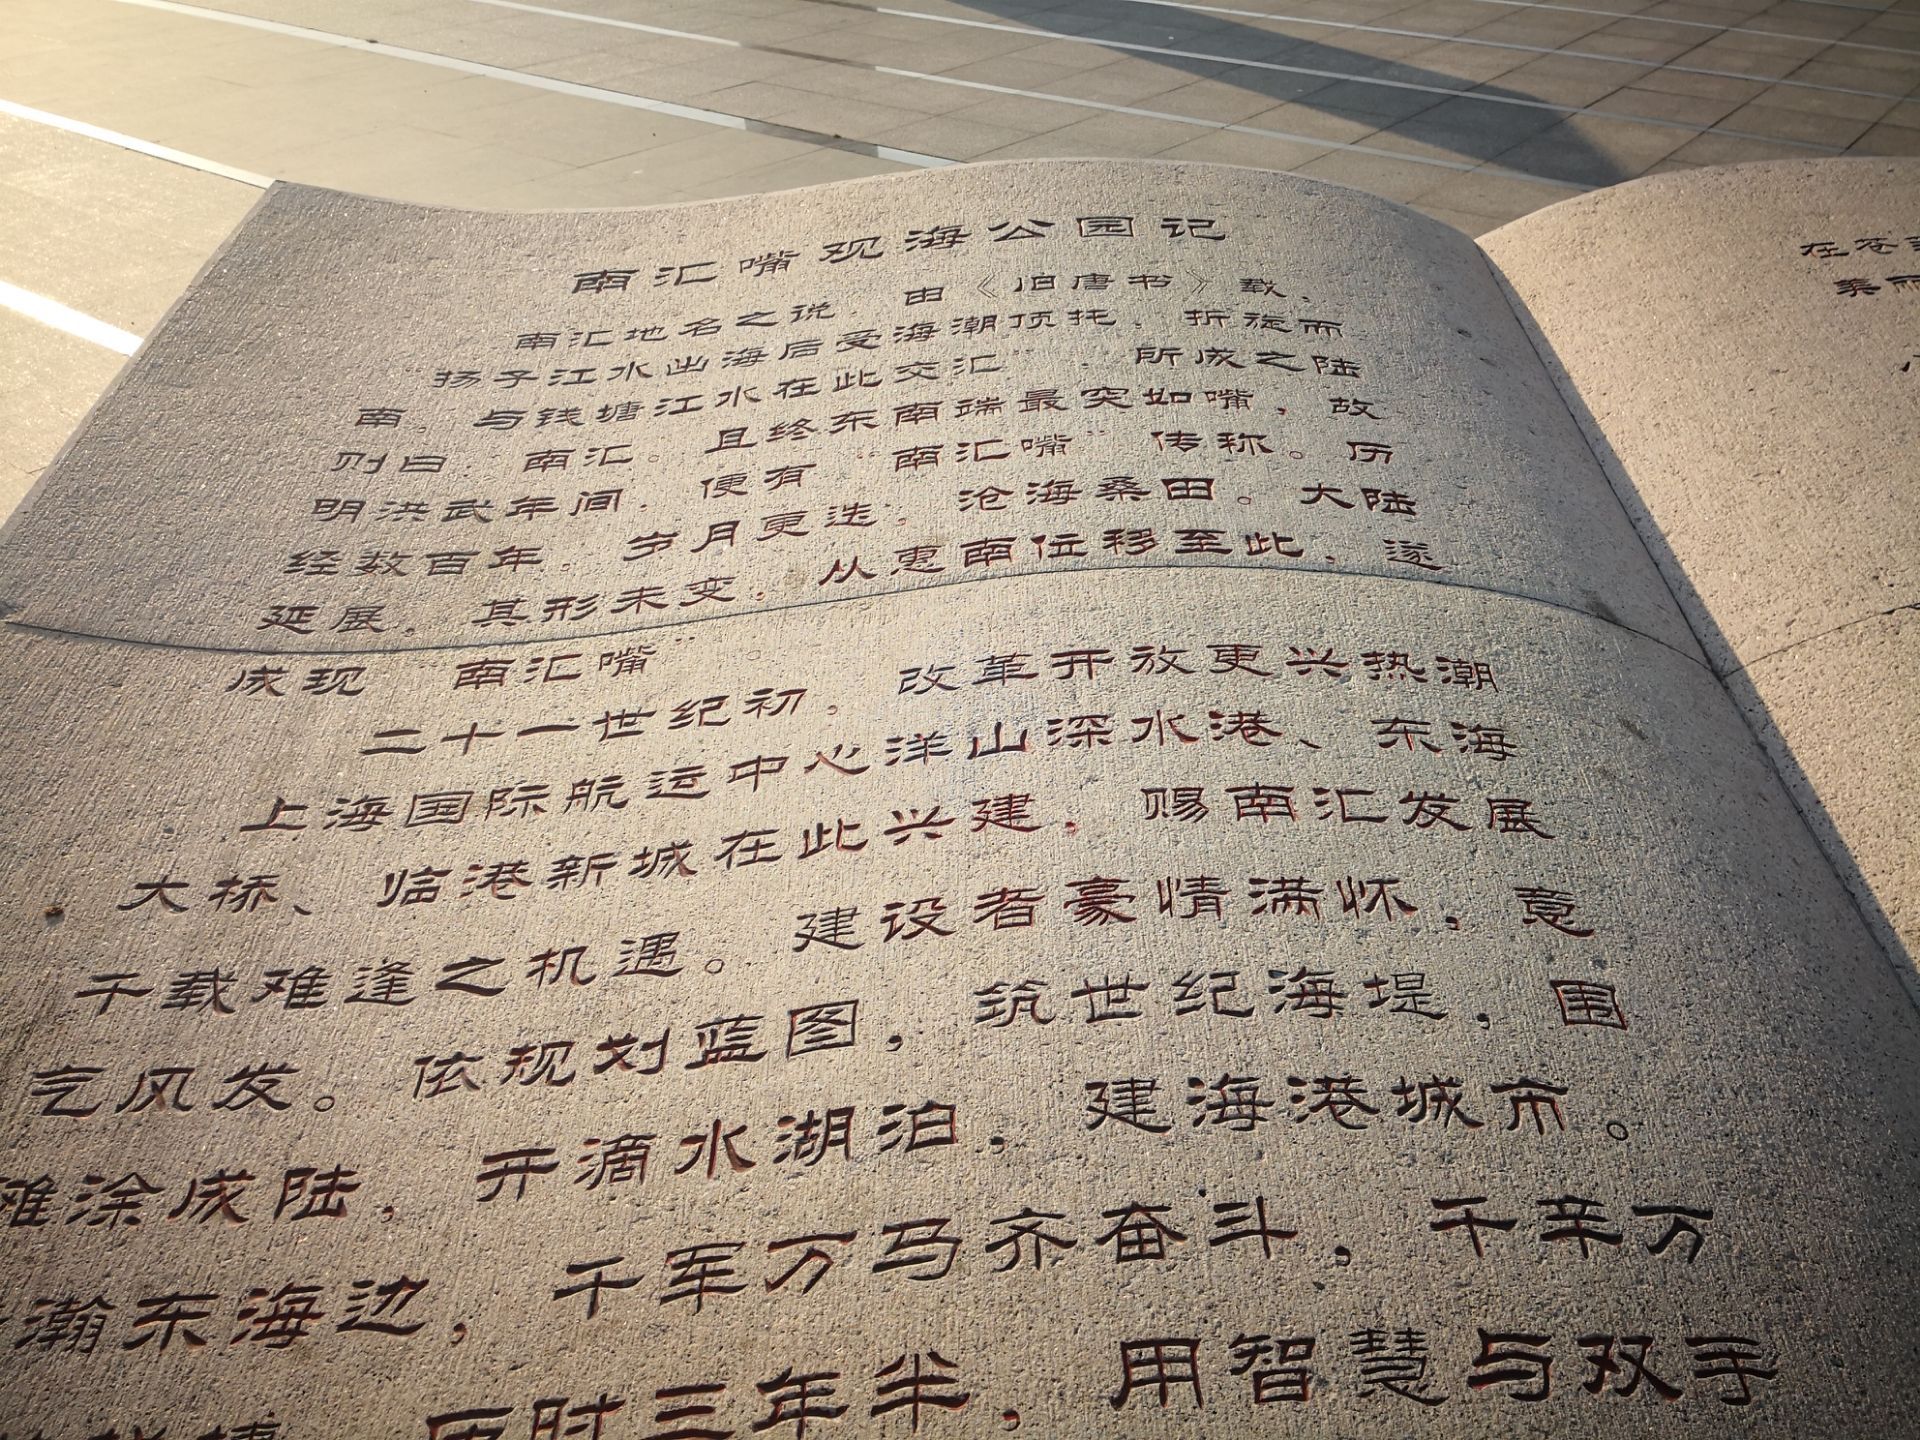 南汇嘴观海公园记
南汇地名之说，由《旧唐书》载，
扬子江水出海后受海潮顶托，折旋而
南。与钱塘江水在此交汇，所成之陆
则曰“南汇。且终东南端最突如嘴，故
明洪武年间，便有“南汇嘴”传称。历
经数百年。岁月更迭，沧海桑田。大陆
延展，其形未变，从惠南位移至此，遂
成现“南汇嘴”。
二十一世纪初，改革开放更兴热潮
上海国际航运中心洋山深水港、东海
大桥、临港新城在此兴建，赐南汇发展
千载难逢之机遇。建设者豪情满怀，意
气风发。依规划蓝图，筑世纪海堤，围
滩涂成陆，开滴水湖泊，建海港城市。
瀚东海边，千军万马齐奋斗，千辛万
历时三年半，用智慧与双手
在苍
美丽